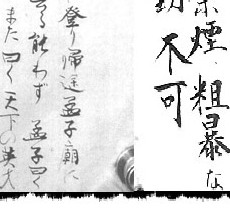 煙 粗暴な
不可
登り帰途孟子廟に
能わず 孟子曰く
また曰く天下の英才